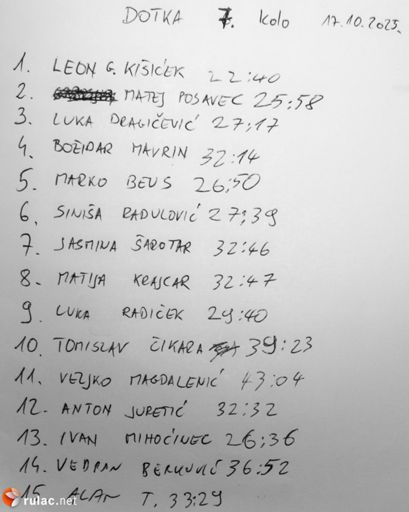 DOTKA 7. kolo 17.10.2025.
1. LEON G. KIŠIČEK 22:40
2. MATEJ POSAVEC 25:58
3. LUKA DRAGIČEVIĆ 27:17
4. BOŽIDAR MAVRIN 32:14
5. MARKO BEUS 26:50
6. SINIŠA RADULOVIĆ 27:39
7. JASMINA ŠAROTAR 32:46
8. MATIJA KRAJCAR 32:47
9. LUKA RADIČEK 29:40
10. TOMISLAV ČIKARA 39:23
11. VELJKO MAGDALENIĆ 43:04
12. ANTON JURETIĆ 32:32
13. IVAN MIHOĆINEC 26:36
14. VEDRAN BERKOVIĆ 36:52
15. ALAN T. 33:29
rulac.net